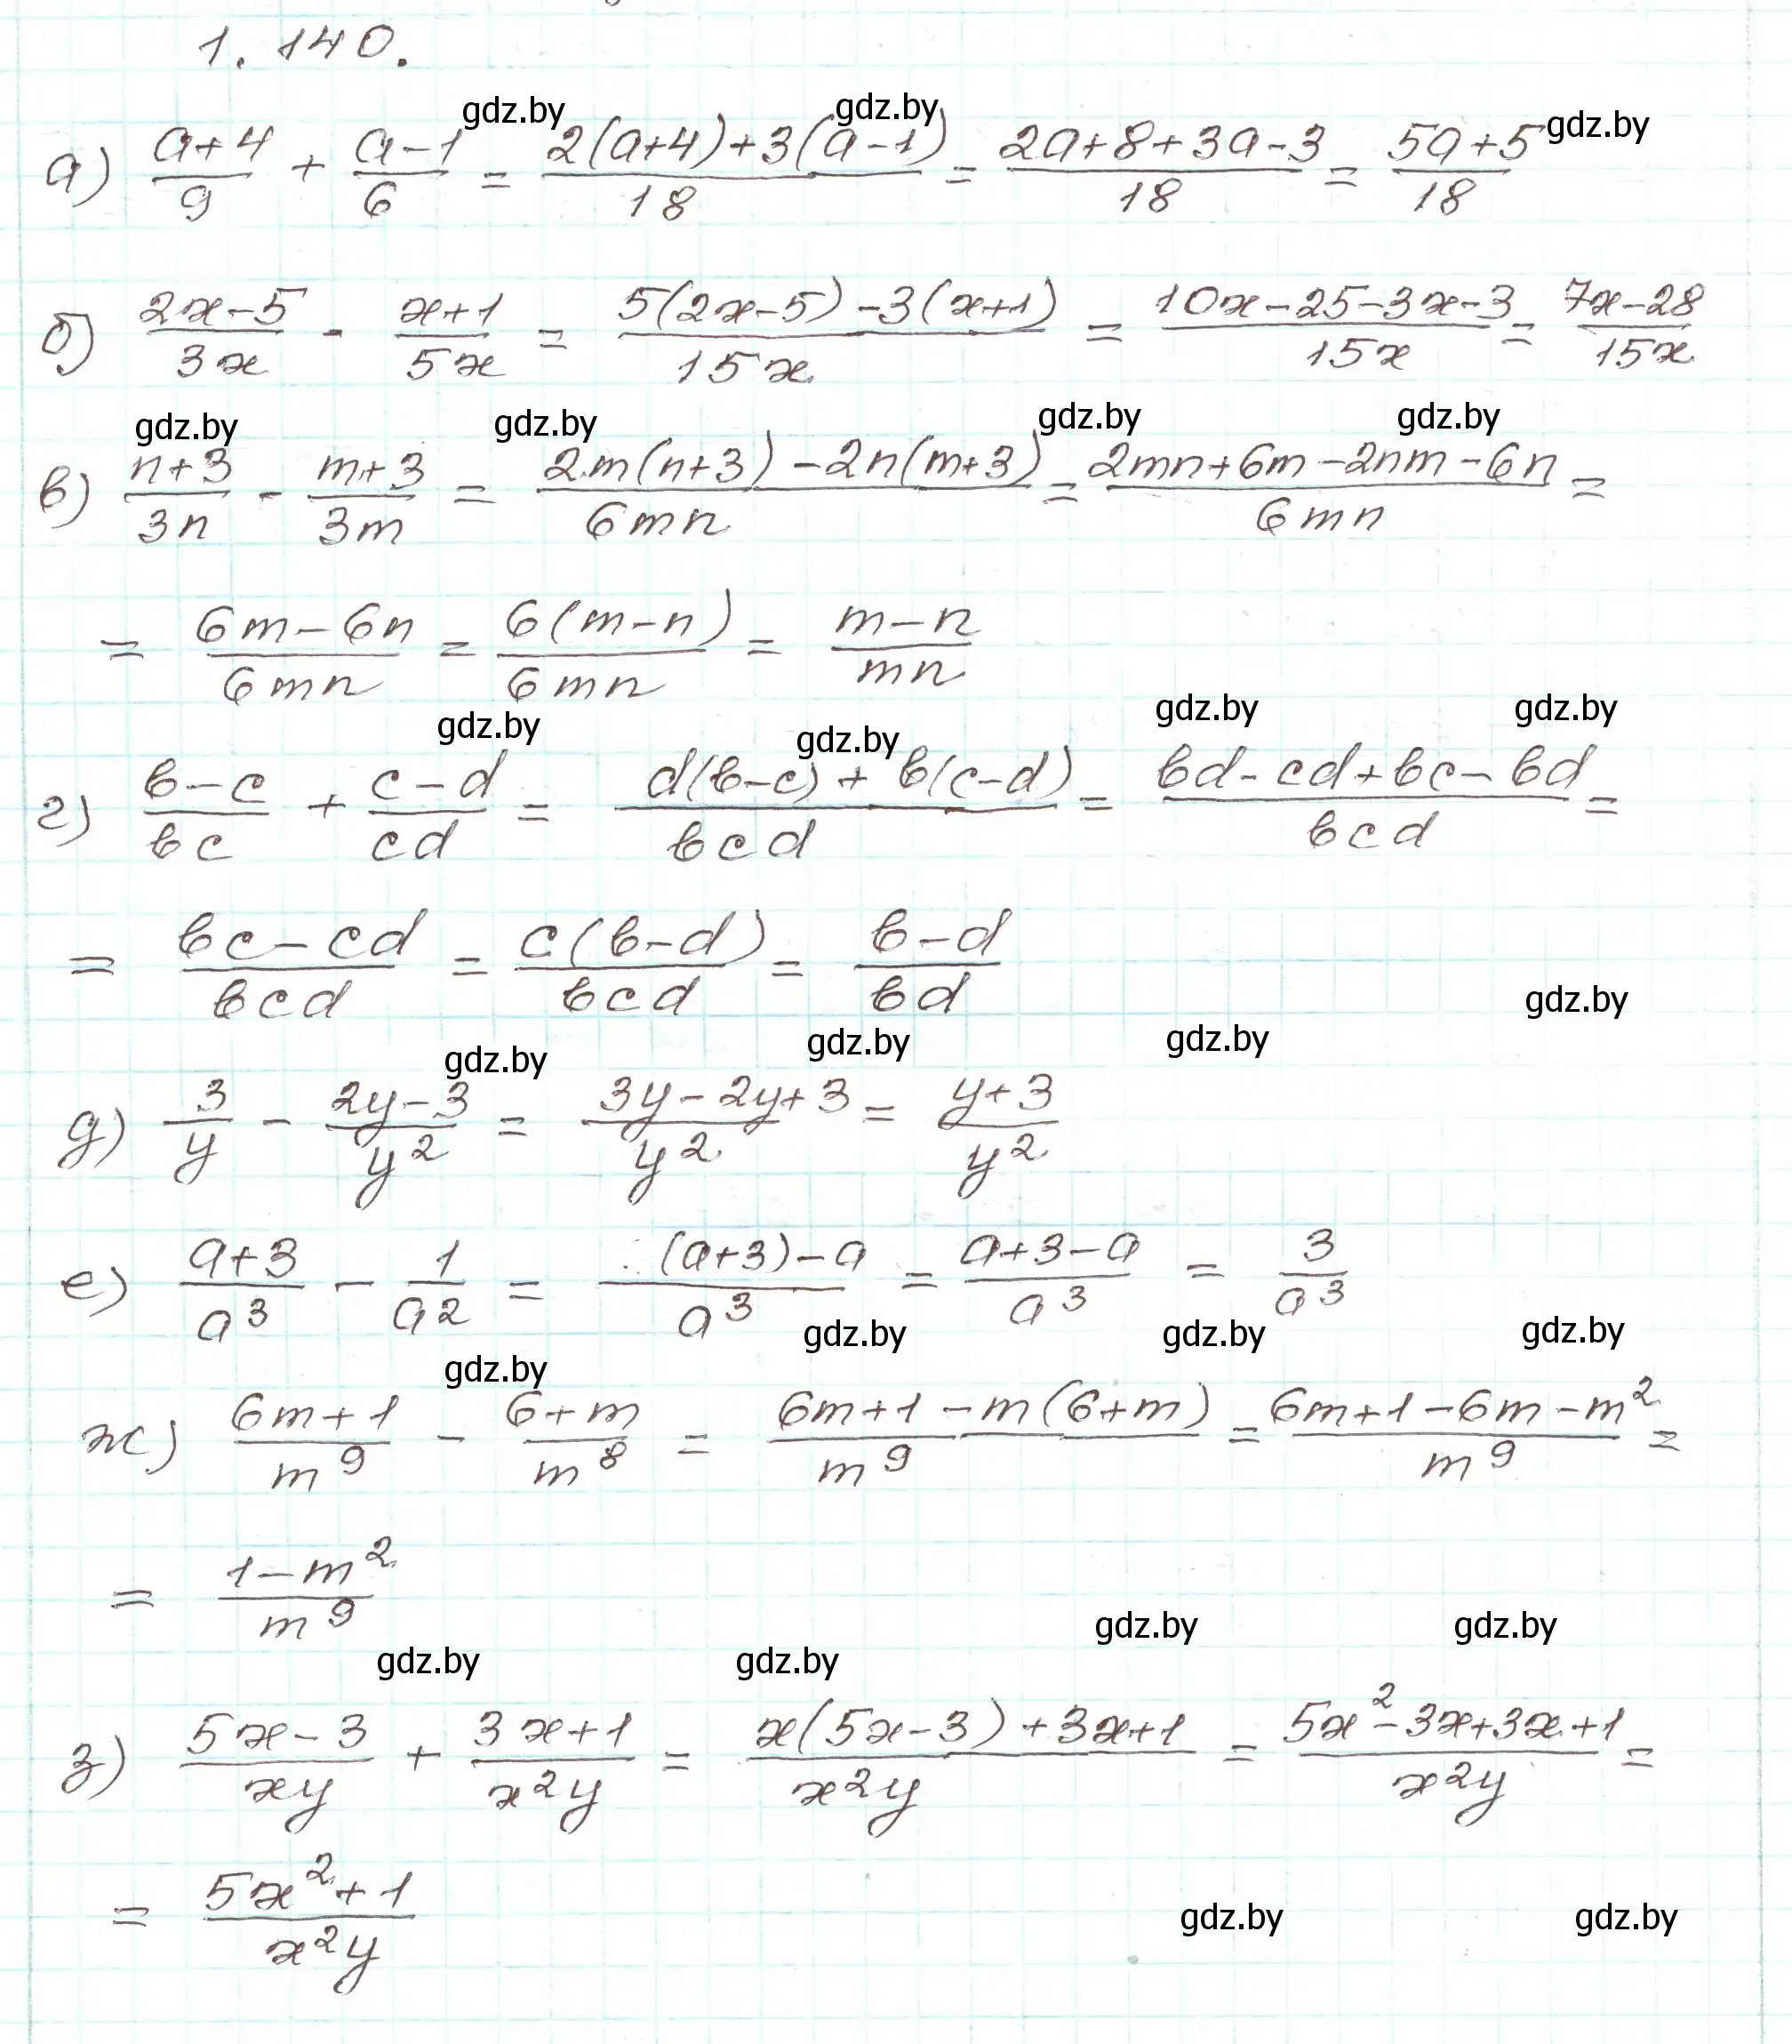 1.140.
gdz.by gdz.by gdz.by
а) (a+4)/9 + (a-1)/6 = (2(a+4)+3(a-1))/18 = (2a+8+3a-3)/18 = (5a+5)/18
б) (2x-5)/(3x) - (x+1)/(5x) = (5(2x-5)-3(x+1))/(15x) = (10x-25-3x-3)/(15x) = (7x-28)/(15x)
gdz.by gdz.by gdz.by gdz.by
в) (n+3)/(3n) - (m+3)/(3m) = (2m(n+3)-2n(m+3))/(6mn) = (2mn+6m-2nm-6n)/(6mn) =
= (6m-6n)/(6mn) = (6(m-n))/(6mn) = (m-n)/(mn)
gdz.by gdz.by gdz.by gdz.by
г) (b-c)/(bc) + (c-d)/(cd) = (d(b-c)+b(c-d))/(bcd) = (bd-cd+bc-bd)/(bcd) =
= (bc-cd)/(bcd) = (c(b-d))/(bcd) = (b-d)/(bd)
gdz.by
gdz.by gdz.by gdz.by
д) 3/y - (2y-3)/y² = (3y-2y+3)/y² = (y+3)/y²
е) (a+3)/a³ - 1/a² = ((a+3)-a)/a³ = (a+3-a)/a³ = 3/a³
gdz.by gdz.by gdz.by gdz.by
ж) (6m+1)/m⁹ - (6+m)/m⁸ = (6m+1-m(6+m))/m⁹ = (6m+1-6m-m²)/m⁹ =
= (1-m²)/m⁹
gdz.by gdz.by gdz.by gdz.by
з) (5x-3)/(xy) + (3x+1)/(x²y) = (x(5x-3)+3x+1)/(x²y) = (5x²-3x+3x+1)/(x²y) =
= (5x²+1)/(x²y)
gdz.by gdz.by